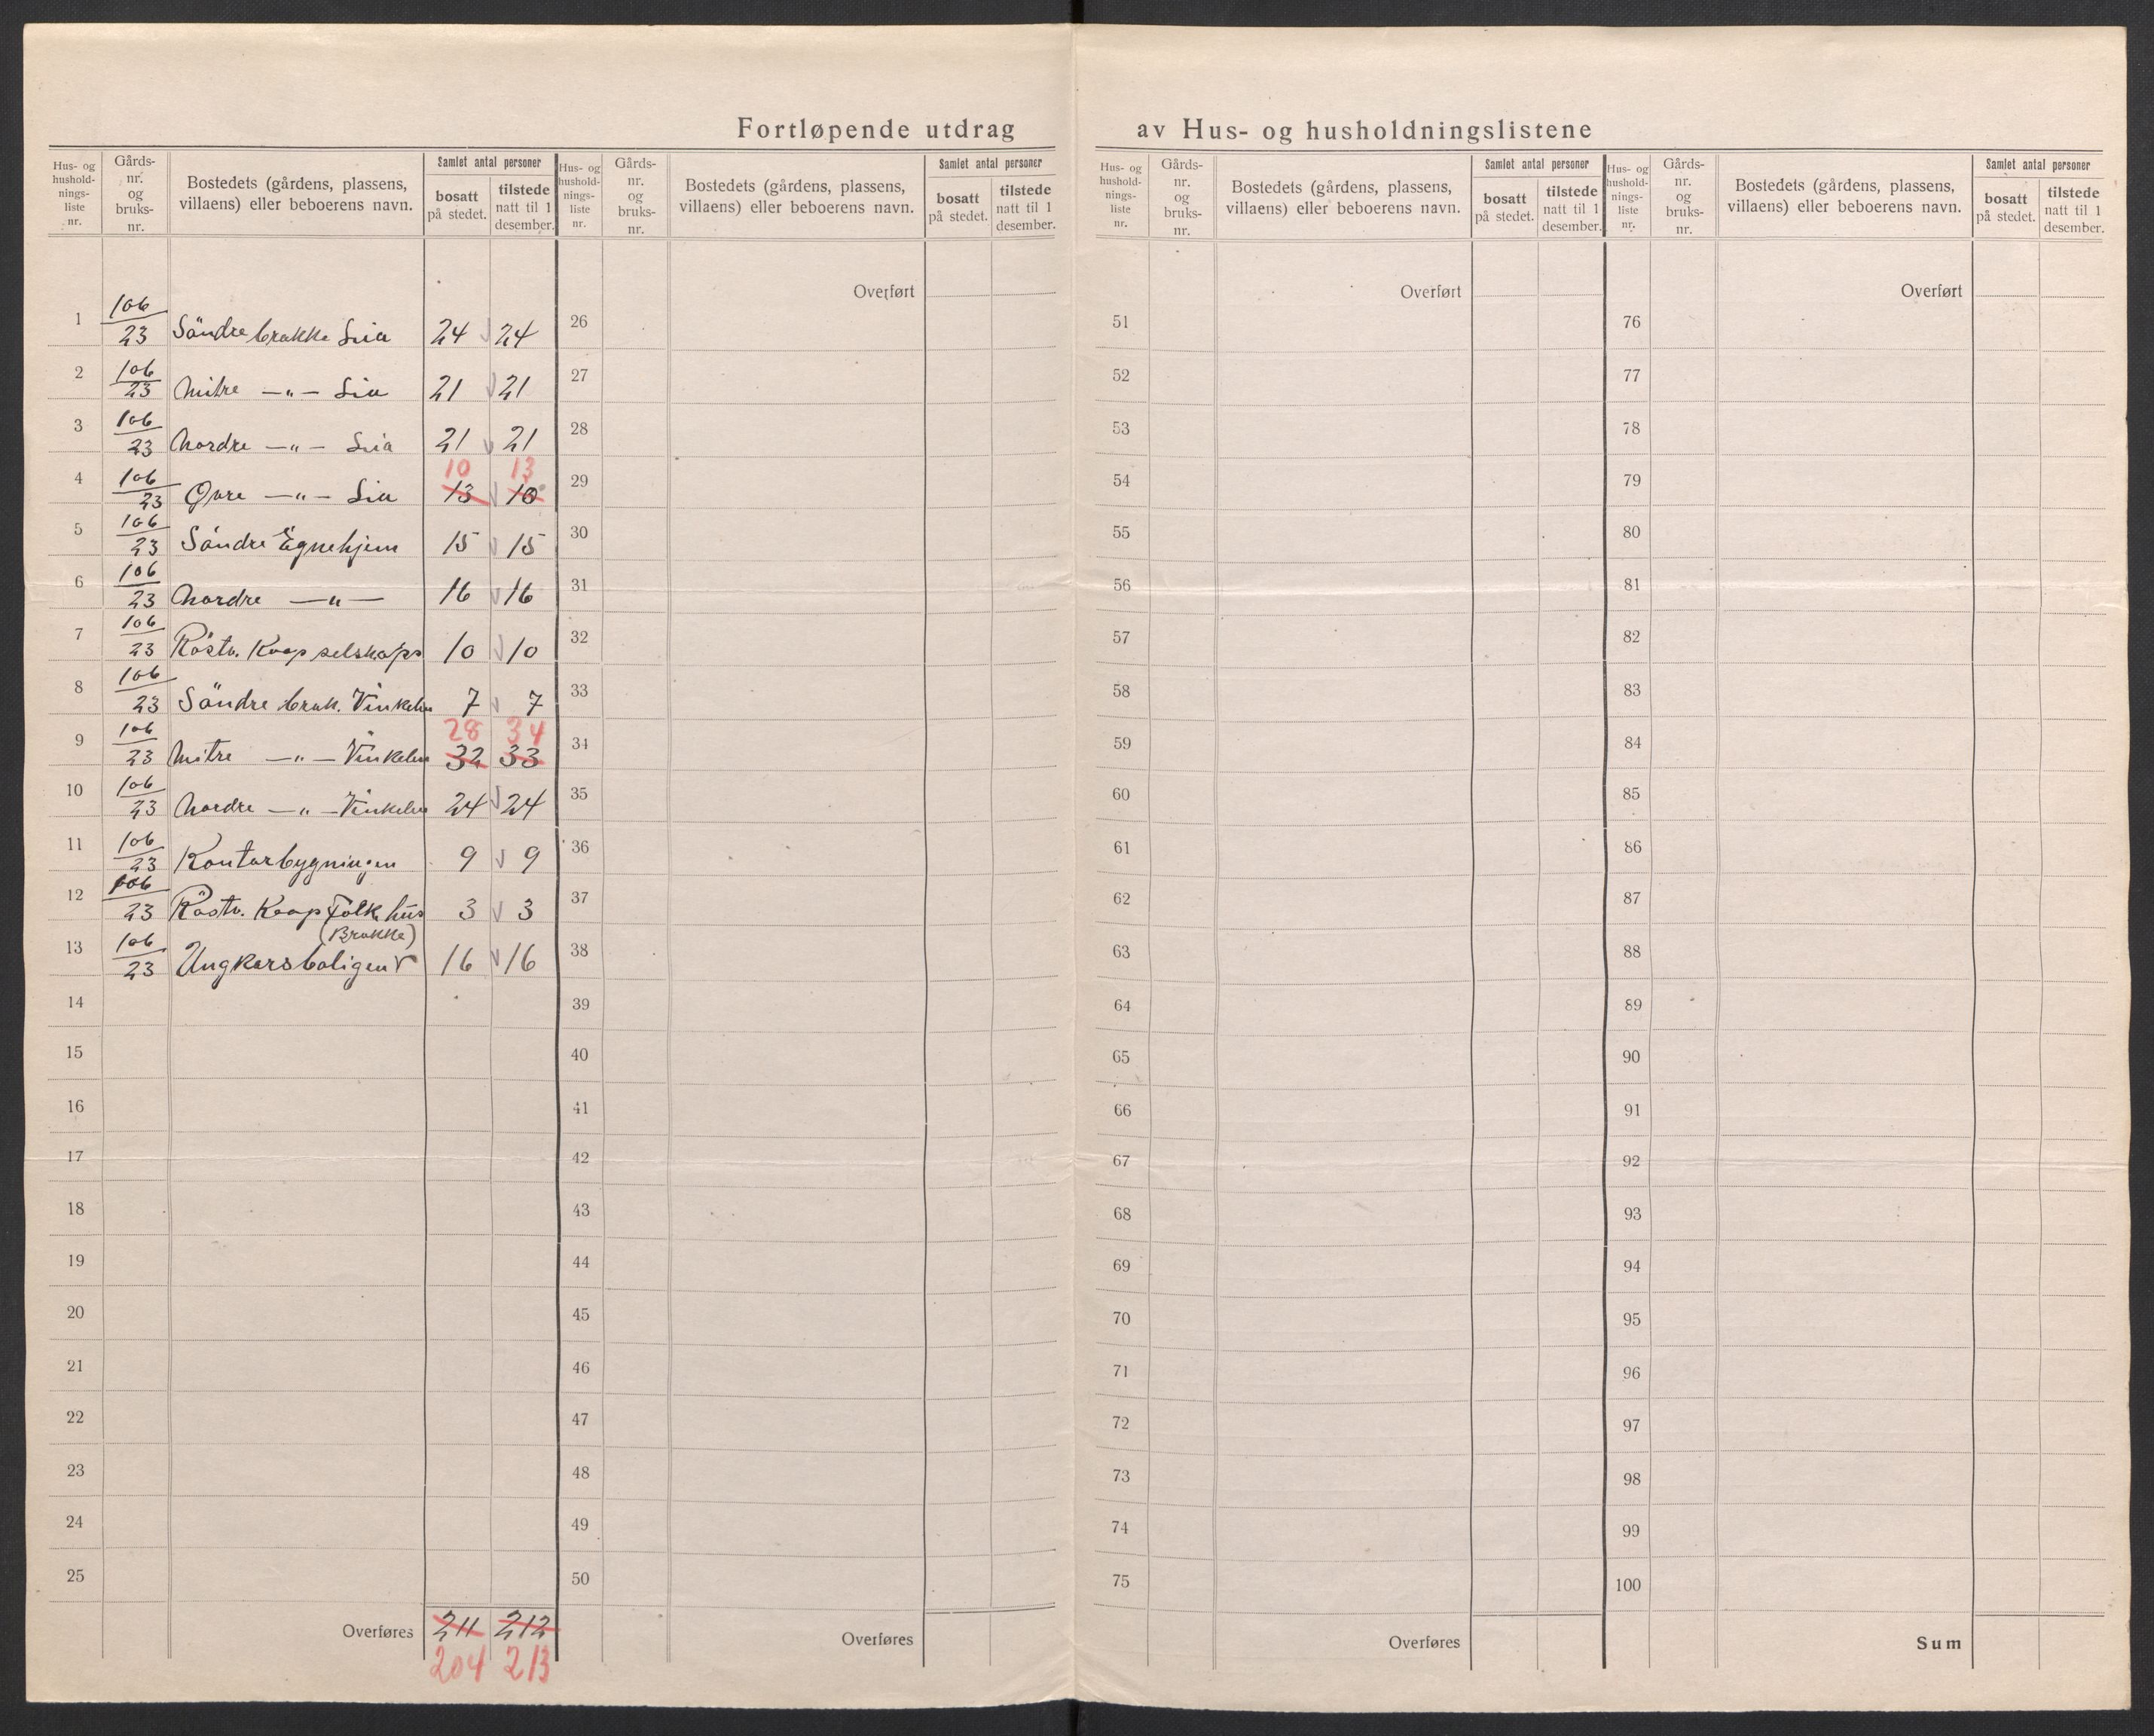 Fortløpende utdrag av Hus- og husholdningslistene
Hus- og hushold-nings-liste nr. | Gårds-nr. og bruks-nr. | Bostedets (gårdens, plassens, villaens) eller beboerens navn. | Samlet antal personer | bosatt på stedet. | tilstede natt til 1 desember.
Hus- og hushold-nings-liste nr. | Gårds-nr. og bruks-nr. | Bostedets (gårdens, plassens, villaens) eller beboerens navn. | Samlet antal personer | bosatt på stedet. | tilstede natt til 1 desember.
Hus- og hushold-nings-liste nr. | Gårds-nr. og bruks-nr. | Bostedets (gårdens, plassens, villaens) eller beboerens navn. | Samlet antal personer | bosatt på stedet. | tilstede natt til 1 desember.
Hus- og hushold-nings-liste nr. | Gårds-nr. og bruks-nr. | Bostedets (gårdens, plassens, villaens) eller beboerens navn. | Samlet antal personer | bosatt på stedet. | tilstede natt til 1 desember.
Overført Overført Overført
1 106/23 Söndre brakke Lia 24 24
2 106/23 Mitre —„— Lia 21 21
3 106/23 Nordre —„— Lia 21 21
10 13
4 106/23 Øvre —„— Lia 13 10
5 106/23 Söndre Egnehjem 15 15
6 106/23 Nordre —„— 16 16
7 106/23 Röstv. Koop selskaps 10 10
8 106/23 Söndre brak. Vinkelen 7 7
28 34
9 106/23 Mitre —„— Vinkelen 32 33
10 106/23 Nordre —„— Vinkelen 24 24
11 106/23 Kontorbygningen 9 9
12 106/23 Röstv. Koop Folk hus 3 3
(Brakke)
13 106/23 Ungkarsboligen 16 16
14
15
16
17
18
19
20
21
22
23
24
25
Overføres 211 212
204 213
26
27
28
29
30
31
32
33
34
35
36
37
38
39
40
41
42
43
44
45
46
47
48
49
50
Overføres
51
52
53
54
55
56
57
58
59
60
61
62
63
64
65
66
67
68
69
70
71
72
73
74
75
Overføres
76
77
78
79
80
81
82
83
84
85
86
87
88
89
90
91
92
93
94
95
96
97
98
99
100
Sum